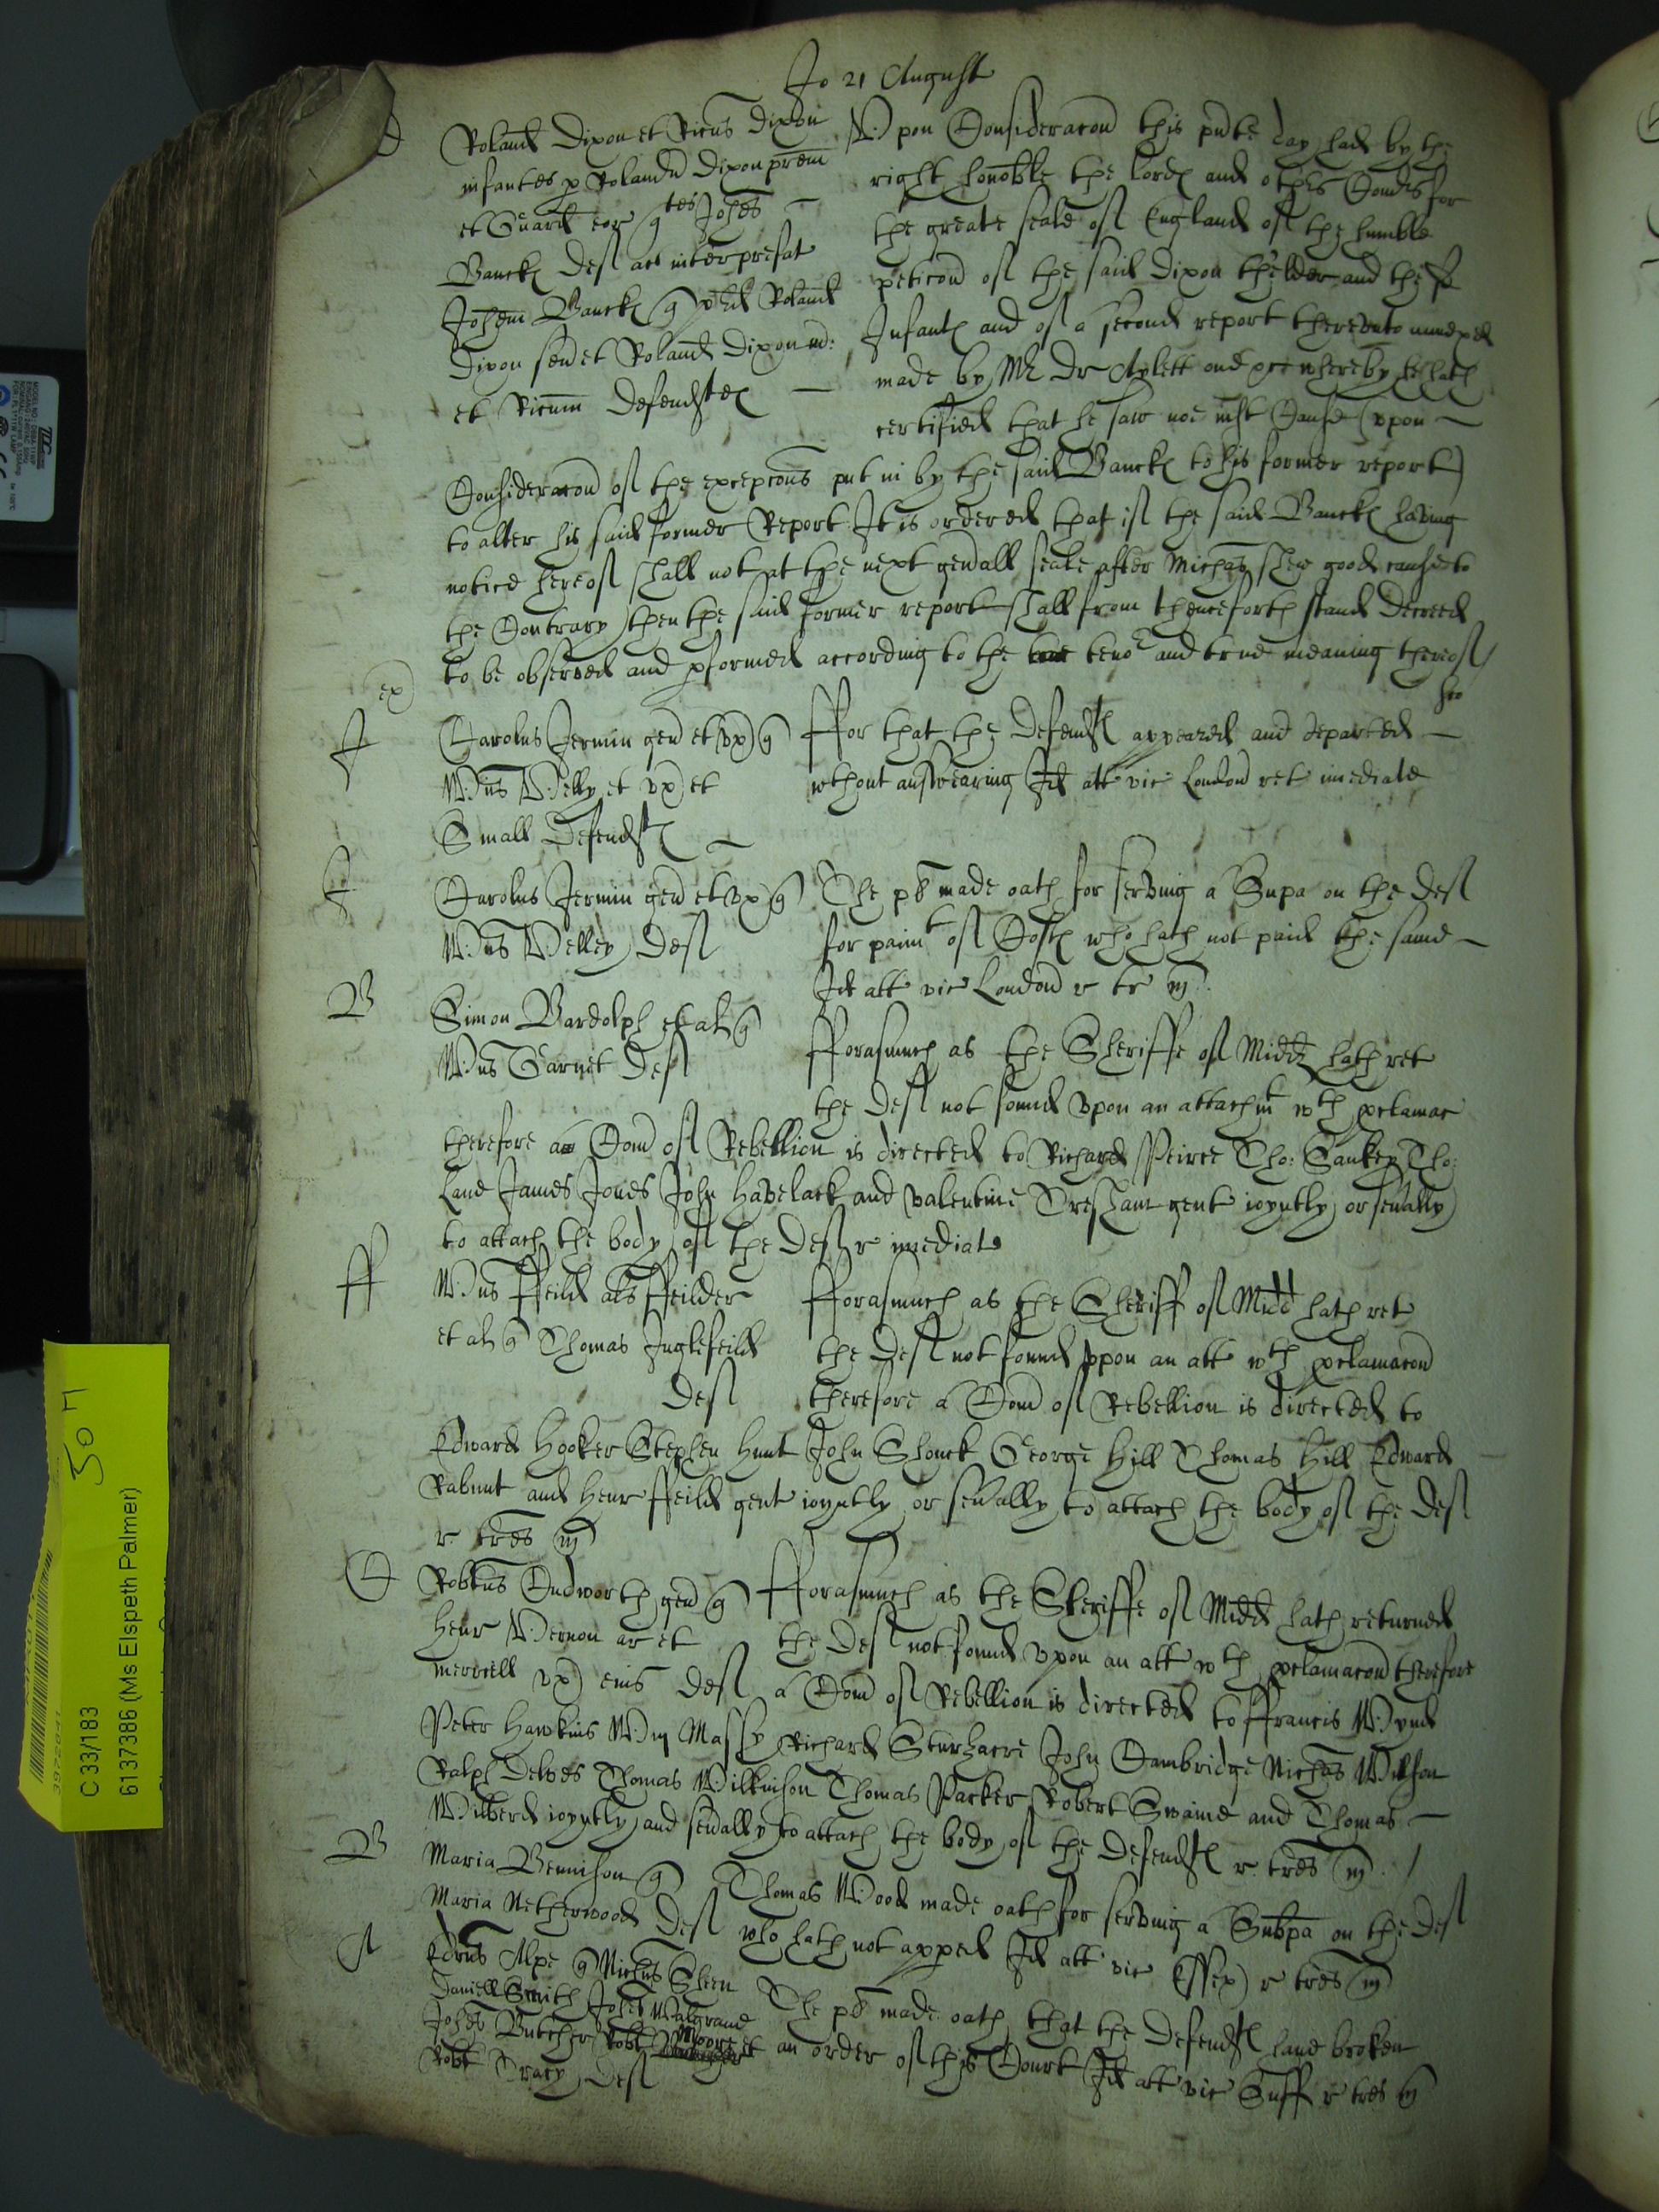 Jo 21 August
D
Roland Dixon et Ricus Dixon
infantes p Roland Dixon prem
et Guard eor qtes Johes
Banck def ac interpresat
Johem Banck q pred Roland
Dixon sen et Roland Dixon
et Ricum defendtes
Upon Consideracon this pnte day had by the
right honoble the lordes and others Comrs for
the greate seale of England of the humble
peticon of the said Dixon thelder and the sd
Infants and of a second report therevnto annexed
made by Mr Dr Aylett one &c whereby he hath
certified that he saw noe iust Cause (vpon
Consideracon of the excepcons put in by the said Bancks to his former report)
to alter his said former Report It is ordered that if the said Bancks having
notice hereof shall not at the next genall seale after Michas shew good cause to
the Contrary then the said former report shall from thenceforth stand Decreed
to be observed and pformed according to the teno and true meaning thereof
ex
J
Carolus Jermin gen et vx q
Wms Welley et vx et
Small Defendts
ffor that the Defendts appeared and departed
wthout answearing Id att vic London ret imediate
J
Carolus Jermin gen et vx q
Wms Welley Def
The pl made oath for serving a Supa on the Def
for paimt of Costs who hath not paid the same
Id att vic London r tr m
B
Simon Bardolph et al q
Wms Garnet Def
fforasmuch as the Sheriffe of Midd hath ret
the Def not found vpon an attachmt wth proclamac
therefore a Com of Rebellion is directed to Richard Peirce Tho: Sankey Tho:
Lane James Jones John Havelack and Valentine Tresham gent ioyntly or seually
to attach the body of the Def r imediate
ff
Wms ffeild als ffeilder
et al q Thomas Inglefeild
Def
fforasmuch as the Sheriff of Midd hath ret
the Def not found vpon an att wth proclamacon
therefore a Com of Rebellion is directed to
Edward Hooker Stephen Hunt John Shouck George Hill Thomas Hill Edward
Rabnut and Henr ffeild gent ioyntly or seually to attach the body of the Def
r tres m
C
Robtus Cudworth gen q
Henr Vernon ar et
vx eius Def
fforasmuch as the Sheriffe of Midd hath returned
the Def not found vpon an att wth proclamacon therefore
a Com of Rebellion is directed to ffrancis Wynd
Peter Hawkins Wm Massy Richard Sturzacre John Cambridge Nichas Wilson
Ralph Delves Thomas Wilkinson Thomas Parker Robert Swaine and Thomas
Wilberd ioyntly and seually to attach the body of the Defendts r tres m
B
Maria Bennison q
Maria Netherwood Def
Thomas Wood made oath for serving a Subpa on the Def
who hath not apped Id att vic Essex r tres m
A
Edrus Alpe q Nichus Steen
Daniell Smith Johes Walgrave
Johes Butcher Robt Moore et
Robt Tracy Def
The pl made oath that the Defendts haue broken
an order of this Court Id att vic Suff r tres m
C 33/183
6137386 (Ms Elspeth Palmer)